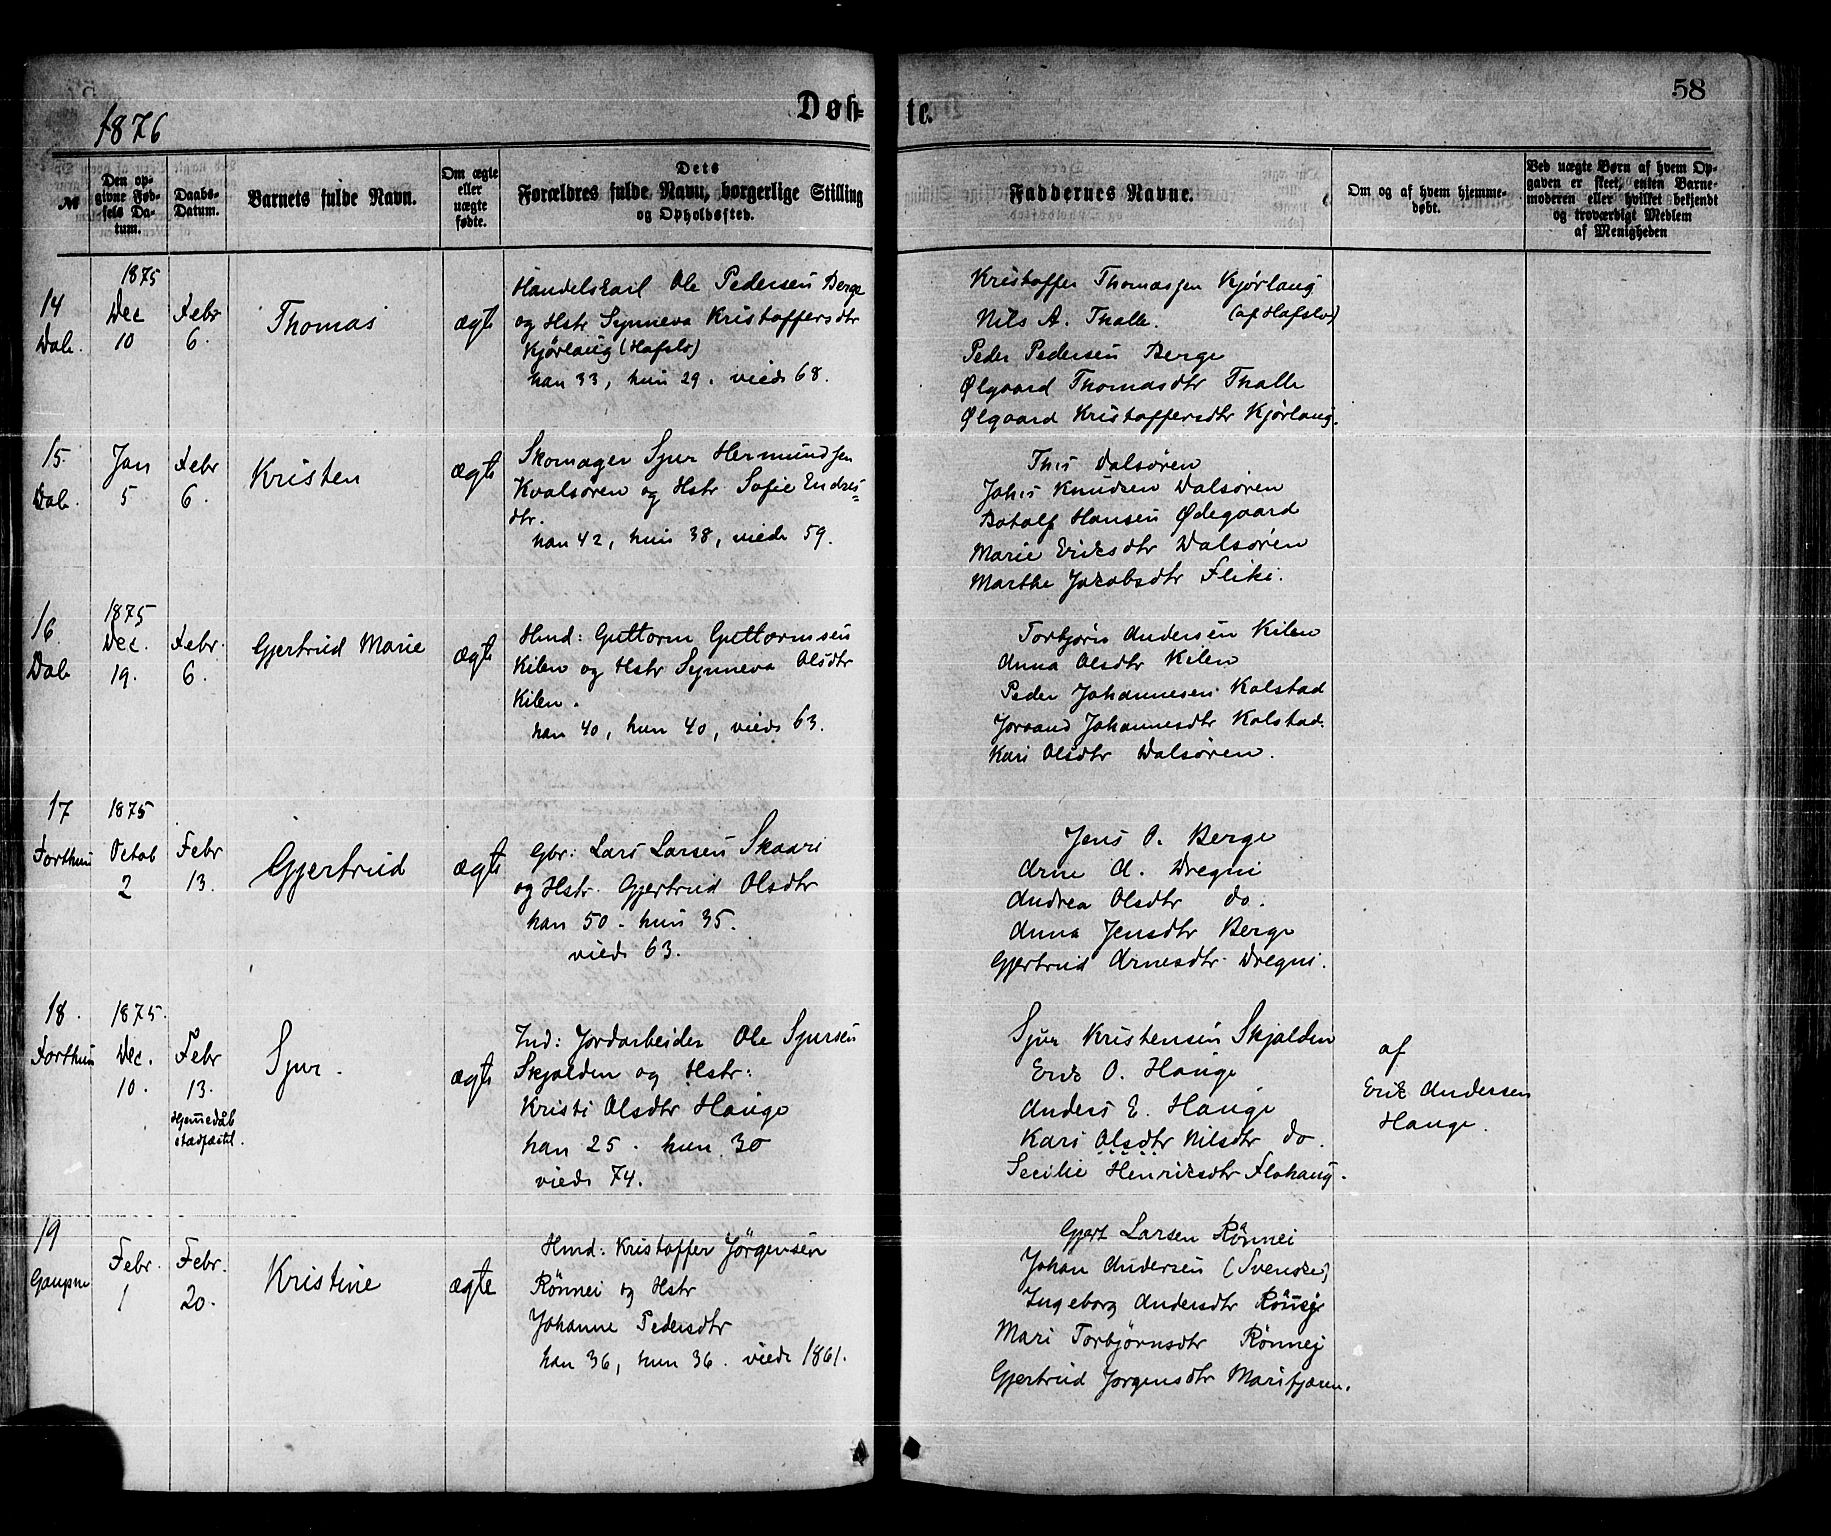 58
Døb-
te.
1876
№
Den op-
givne Fød-
sels Da-
tum.
Daabs-
Datum.
Barnets fulde Navn.
Om ægte
eller
uægte
fødte.
Dets
Forældres fulde Navn, borgerlige Stilling
og Opholdssted.
Faddernes Navne.
Om og af hvem hjemme-
døbt.
Ved uægte Børn af hvem Op-
gaven er skeet, enten Barne-
moderen eller hvilket bekjendt
og troværdigt Medlem
af Menigheden
14
Dale
1875
Dec
10
Febr
6.
Thomas
ægte
Handelskarl Ole Pedersen Berge
og Hstr Synneva Kristoffersdtr
Kjørlaug (Hafslo)
han 33, hun 29. viede 68.
Kristoffer Thomassen Kjørlaug
(af Hafslo)
Nils A. Thalle.
Peder Pedersen Berge
Ølgaard Thomasdtr Thalle
Ølgaard Kristoffersdtr Kjørlaug.
15.
Dale
Jan
5
Febr
6.
Kristen
ægte
Skomager Sjur Hermundsen
Kvalsøren og Hstr Sofie Endres=
dtr.
han 42, hun 38, viede 59.
Ths Dalsøren
Johs Knudsen Dalsøren
Botolf Hansen Ødegaard
Marie Eriksdtr Dalsøren
Marthe Jakobsdtr Fliki.
16.
Dale
1875
Dec.
19.
Febr.
6.
Gjertrud Marie
ægte
Hmd: Guttorm Guttormsen
Kilen og Hstr Synneva Olsdtr
Kilen.
han 40, hun 40, viede 63.
Torbjørn Andersen Kilen
Anna Olsdtr Kilen
Peder Johannesen Kolstad
Joraand Johannesdtr Kolstad.
Kari Olsdtr Dalsøren.
17
Forthun
1875
Octob
2
Febr
13.
Gjertrud
ægte
Gbr: Lars Larsen Skaari
og Hstr. Gjertrud Olsdtr
han 50. hun 35.
viede 63.
Jens O. Berge
Arne A. Dregni
Andrea Olsdtr do.
Anna Jensdtr Berge
Gjertrud Arnesdtr Dregni.
18.
Forthun
1875.
Dec.
10.
Febr
13.
Hjemmedåb
stadfæstet.
Sjur.
ægte
Ind: Jordarbeider Ole Sjursen
Skjolden og Hstr:
Kristi Olsdtr Hauge
han 25. hun 30
viede 74.
Sjur Kristensen Skjolden
Erik O. Hauge
Anders E. Hauge
Kari Olsdtr Nilsdtr do.
Secilie Henriksdtr Flohaug.
af
Erik Andersen
Hauge.
19
Gaupne
Febr.
1
Febr.
20.
Kristine
ægte
Hmd: Kristoffer Jörgensen
Rönnei og Hstr
Johanne Pedersdtr
han 36, hun 36. viede 1861.
Gjert Larsen Rönnei
Johan Andersen (Svenske)
Ingeborg Andersdtr Rönnei
Mari Torbjørnsdtr Rönnei
Gjertrud Jørgensdtr Marifjæren.